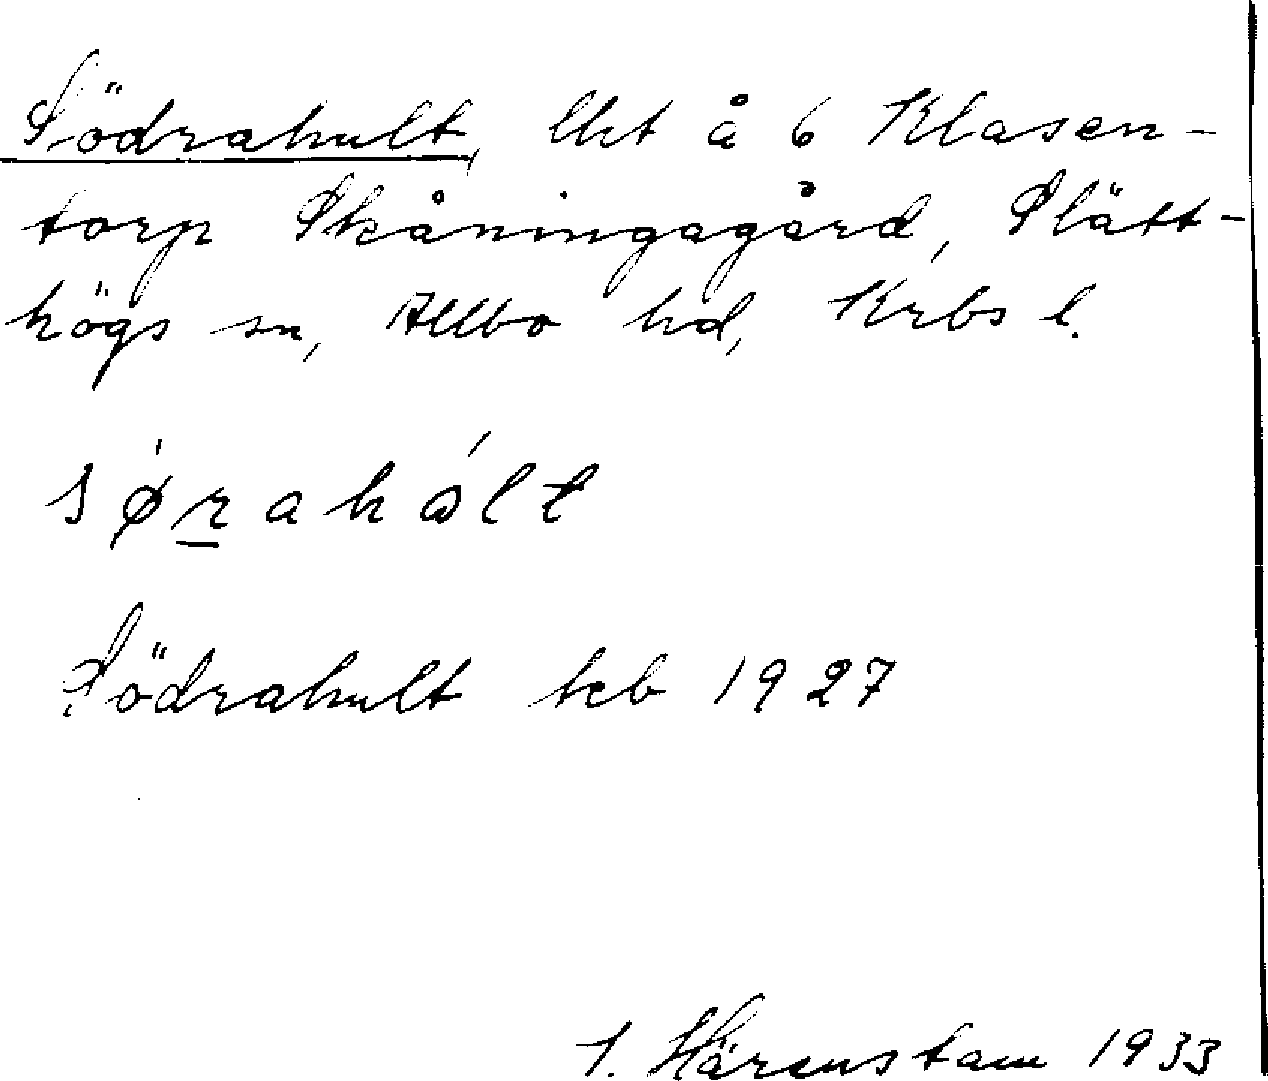 Södrahult, lht å 6 Klasen-
torp Skåningagård, Slätt-
högs sn, Allbo hd, Krbs l.
Södrahult teb 1927
Härenstam 1933